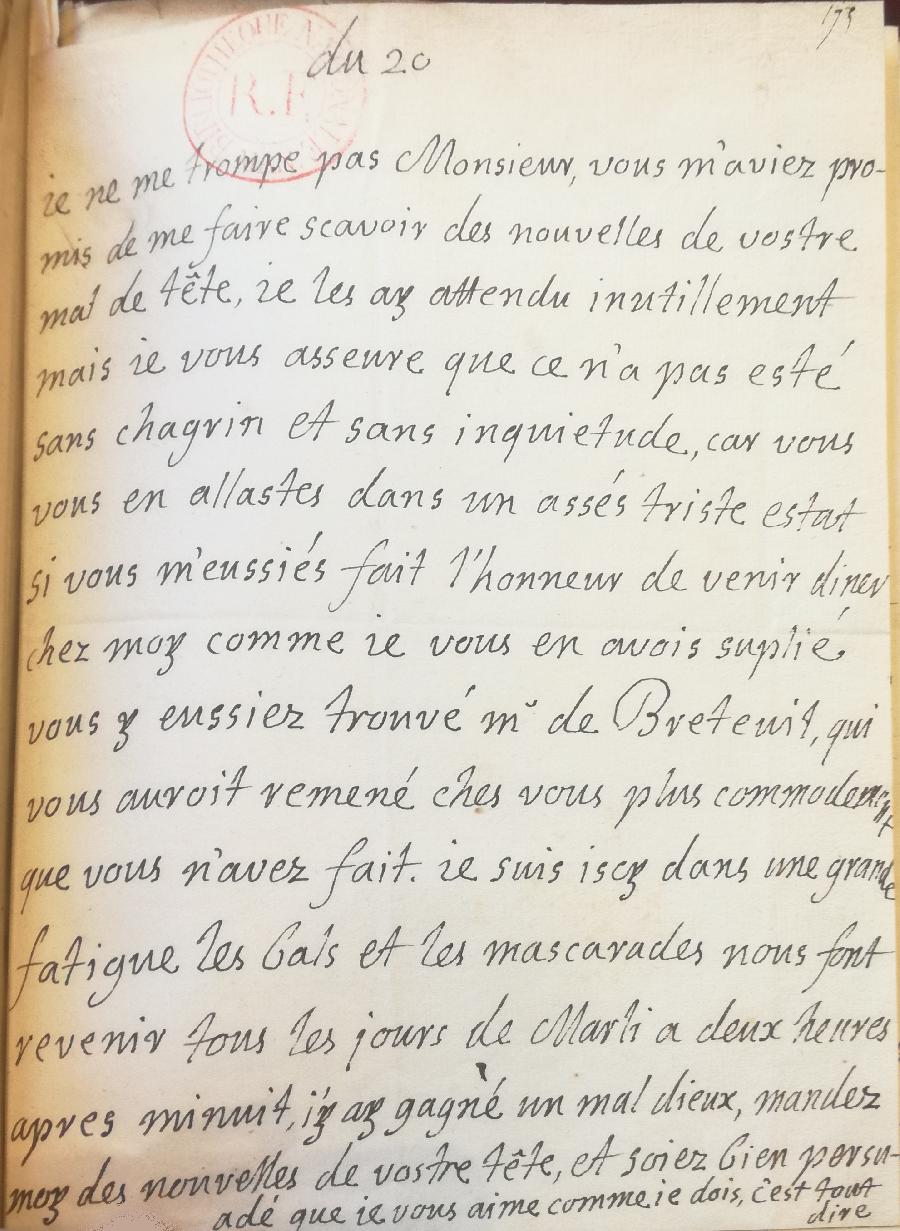 173
du 20
BIBLIOTHEQUE NATIONALE
R.F
ie ne me trompe pas Monsieur, vous m'aviez pro-
mis de me faire scavoir des nouvelles de vostre
mal de tête, ie les ay attendu inutillement
mais ie vous asseure que ce n'a pas esté
sans chagrin et sans inquietude, car vous
vous en allastes dans un assés triste estat
si vous m'eussiés fait l'honneur de venir diner
chez moy comme ie vous en avois suplié,
vous y eussiez trouvé mr de Breteuil, qui
vous auroit remené ches vous plus commodement
que vous n'avez fait. ie suis iscy dans une grande
fatigue les bals et les mascarades nous font
revenir tous les jours de Marli a deux heures
apres minuit, i'y ay gagné un mal dieux, mandez
moy des nouvelles de vostre tête, et soiez bien persu-
adé que ie vous aime comme ie dois, c'est tout
dire